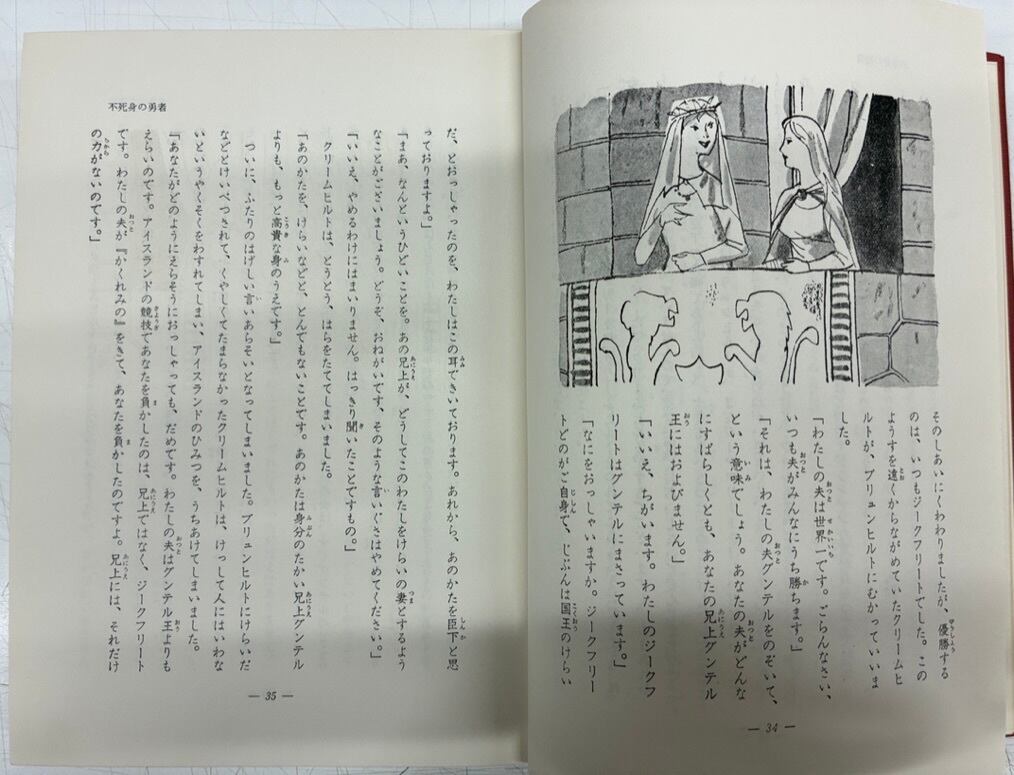 そのしあいにくわわりましたが、優勝する
のは、いつもジークフリートでした。この
ようすを遠くからながめていたクリームヒ
ルトが、ブリュンヒルトにむかっていいま
した。
「わたしの夫は世界一です。ごらんなさい、
いつも夫がみんなにうち勝ちます。」
「それは、わたしの夫グンテルをのぞいて、
という意味でしょう。あなたの夫がどんな
にすばらしくとも、あなたの兄上グンテル
王にはおよびません。」
「いいえ、ちがいます。わたしのジークフ
リートはグンテルにまさっています。」
「なにをおっしゃいますか。ジークフリー
トどのがご自身で、じぶんは国王のけらい
― 34 ―
不死身の勇者
だ、とおっしゃったのを、わたしはこの耳できいております。あれから、あのかたを臣下と思
っておりますよ。」
「まあ、なんというひどいことを。あの兄上が、どうしてこのわたしをけらいの妻とするよう
なことがございましょう。どうぞ、おねがいです、そのような言いぐさはやめてください。」
「いいえ、やめるわけにはまいりません。はっきり聞いたことですもの。」
クリームヒルトは、とうとう、はらをたててしまいました。
「あのかたを、けらいなどと、とんでもないことです。あのかたは身分のたかい兄上グンテル
よりも、もっと高貴な身のうえです。」
ついに、ふたりのはげしい言いあらそいとなってしまいました。ブリュンヒルトにけらいだ
などとけいべつされて、くやしくてたまらなかったクリームヒルトは、けっして人にはいわな
いというやくそくをわすれてしまい、アイスランドのひみつを、うちあけてしまいました。
「あなたがどのようにえらそうにおっしゃっても、だめです。わたしの夫はグンテル王よりも
えらいのです。アイスランドの競技であなたを負かしたのは、兄上ではなく、ジークフリート
です。わたしの夫が『かくれみの』をきて、あなたを負かしたのですよ。兄上には、それだけ
の力がないのです。」
― 35 ―